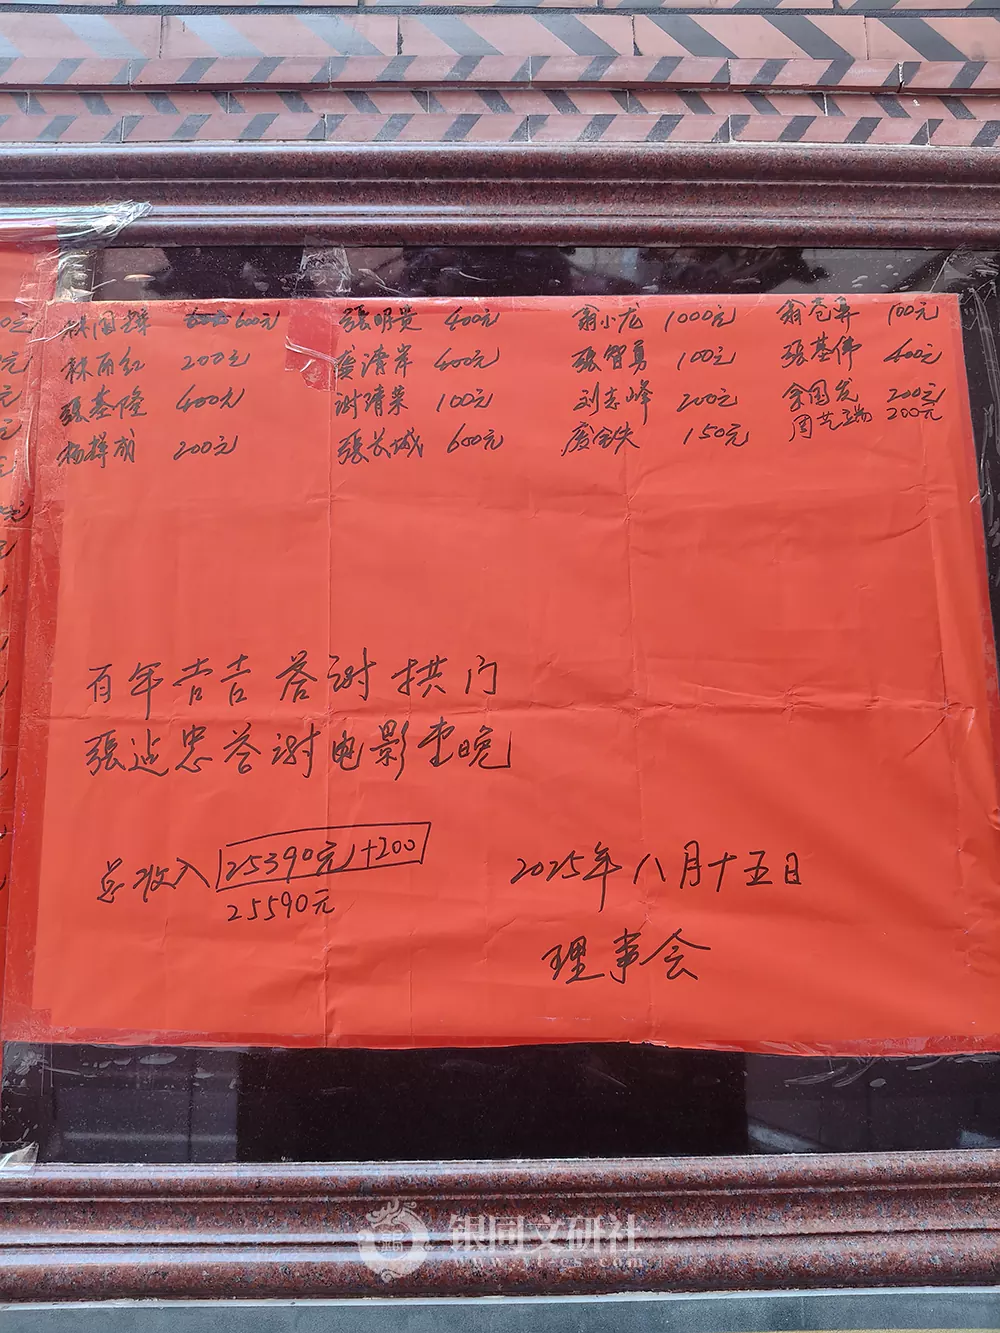 林国辉 600元 張明贵 400元 翁小龙 1000元 翁苍 100元
林丽红 200元 清岸 400元 張智勇 100元 張基偉 400元
張基隆 400元 谢清荣 100元 刘志峰 200元 余国 200元
杨 成 200元 張长城 600元 150元 周芝 200元
百年吉吉答谢拱门
張 忠答谢电影 晚
总收入 25390元+200
25590元
2025年八月十五日
理事会
银同文研社
www.yt-cs.com